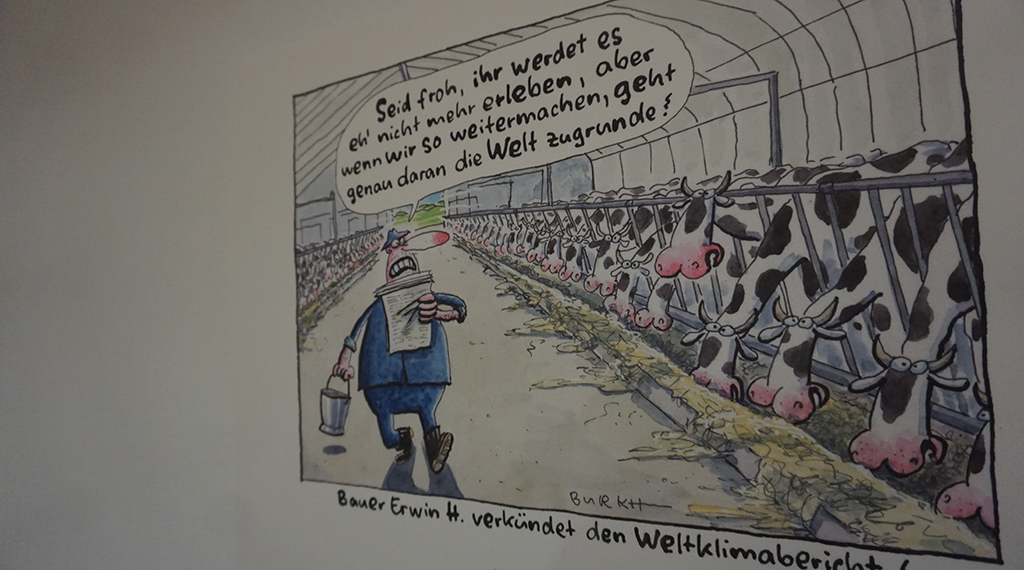 Seid froh, ihr werdet es
eh' nicht mehr erleben, aber
wenn wir so weitermachen, geht
genau daran die Welt zugrunde!
BURKH
Bauer Erwin H. verkündet den Weltklimabericht